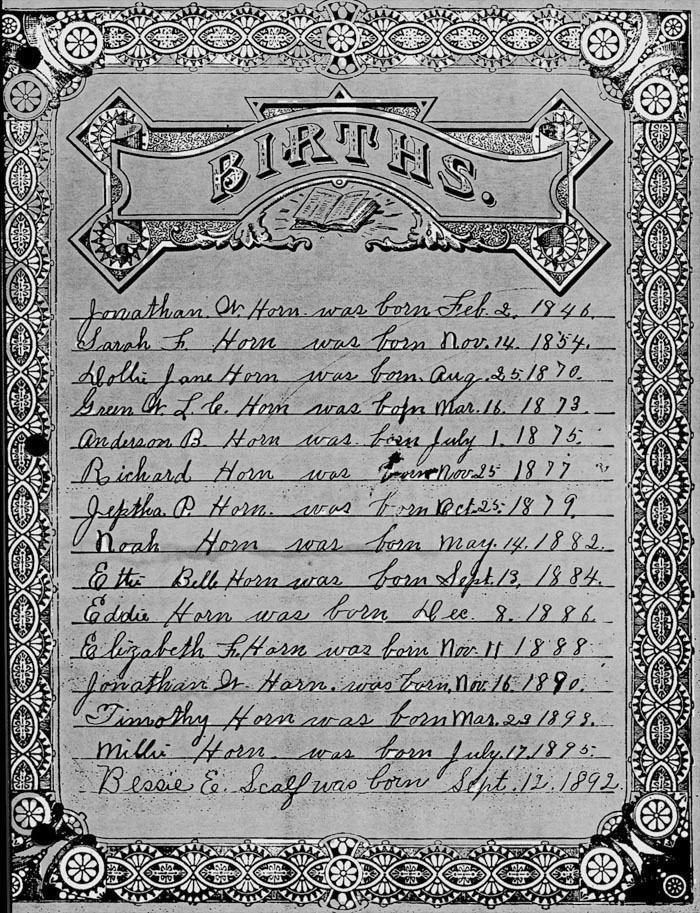 BIRTHS.
Jonathan W. Horn was born Feb. 2, 1846.
Sarah F. Horn was born Nov. 14. 1854.
Dollie Jane Horn was born Aug. 25. 1870.
Green W. L. C. Horn was born Mar. 16. 1873.
Anderson B. Horn was born July 1. 1875.
Richard Horn was born Nov 25 1877
Jeptha P. Horn. was born Oct. 25. 1879.
Noah Horn was born May. 14. 1882.
Ettie Belle Horn was born Sept. 13, 1884.
Eddie Horn was born Dec. 8. 1886.
Elizabeth F. Horn was born Nov. 11 1888
Jonathan W. Horn. was born, Nov. 16. 1890.
Timothy Horn was born Mar. 23 1893.
Millie Horn. was born July. 17. 1895.
Bessie E. Scalf was born Sept. 12. 1892.